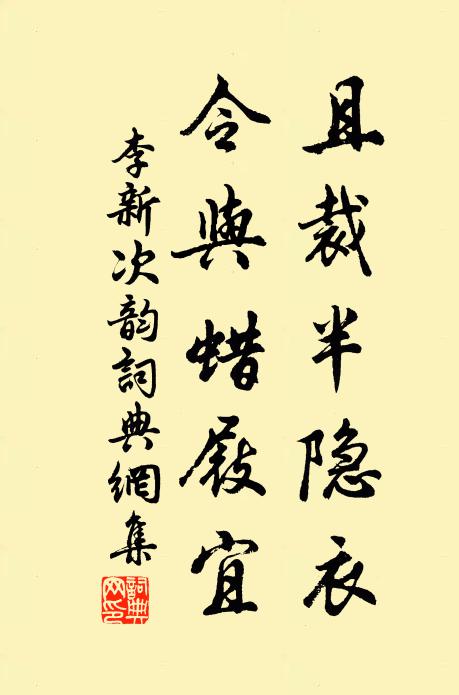 且裁半隐衣
令與蜡屐宜
李新次韵詞典網集
詞典网印